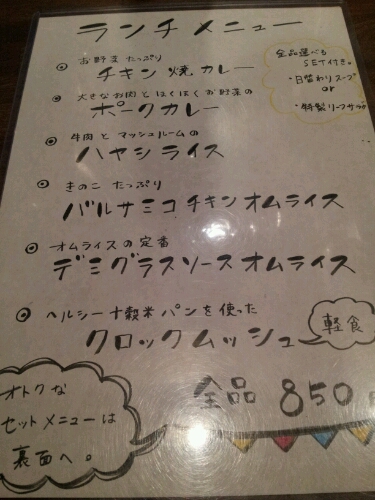 ランチメニュー
お野菜たっぷり
チキン焼カレー
全品選べる
SET付き。
・日替わりスープ
or
・特製リーフサラダ
大きなお肉とほくほくお野菜の
ポークカレー
牛肉とマッシュルームの
ハヤシライス
きのこたっぷり
バルサミコチキンオムライス
オムライスの定番
デミグラスソースオムライス
ヘルシー十穀米パンを使った
クロックムッシュ
軽食
全品 850
オトクな
セットメニューは
裏面へ。